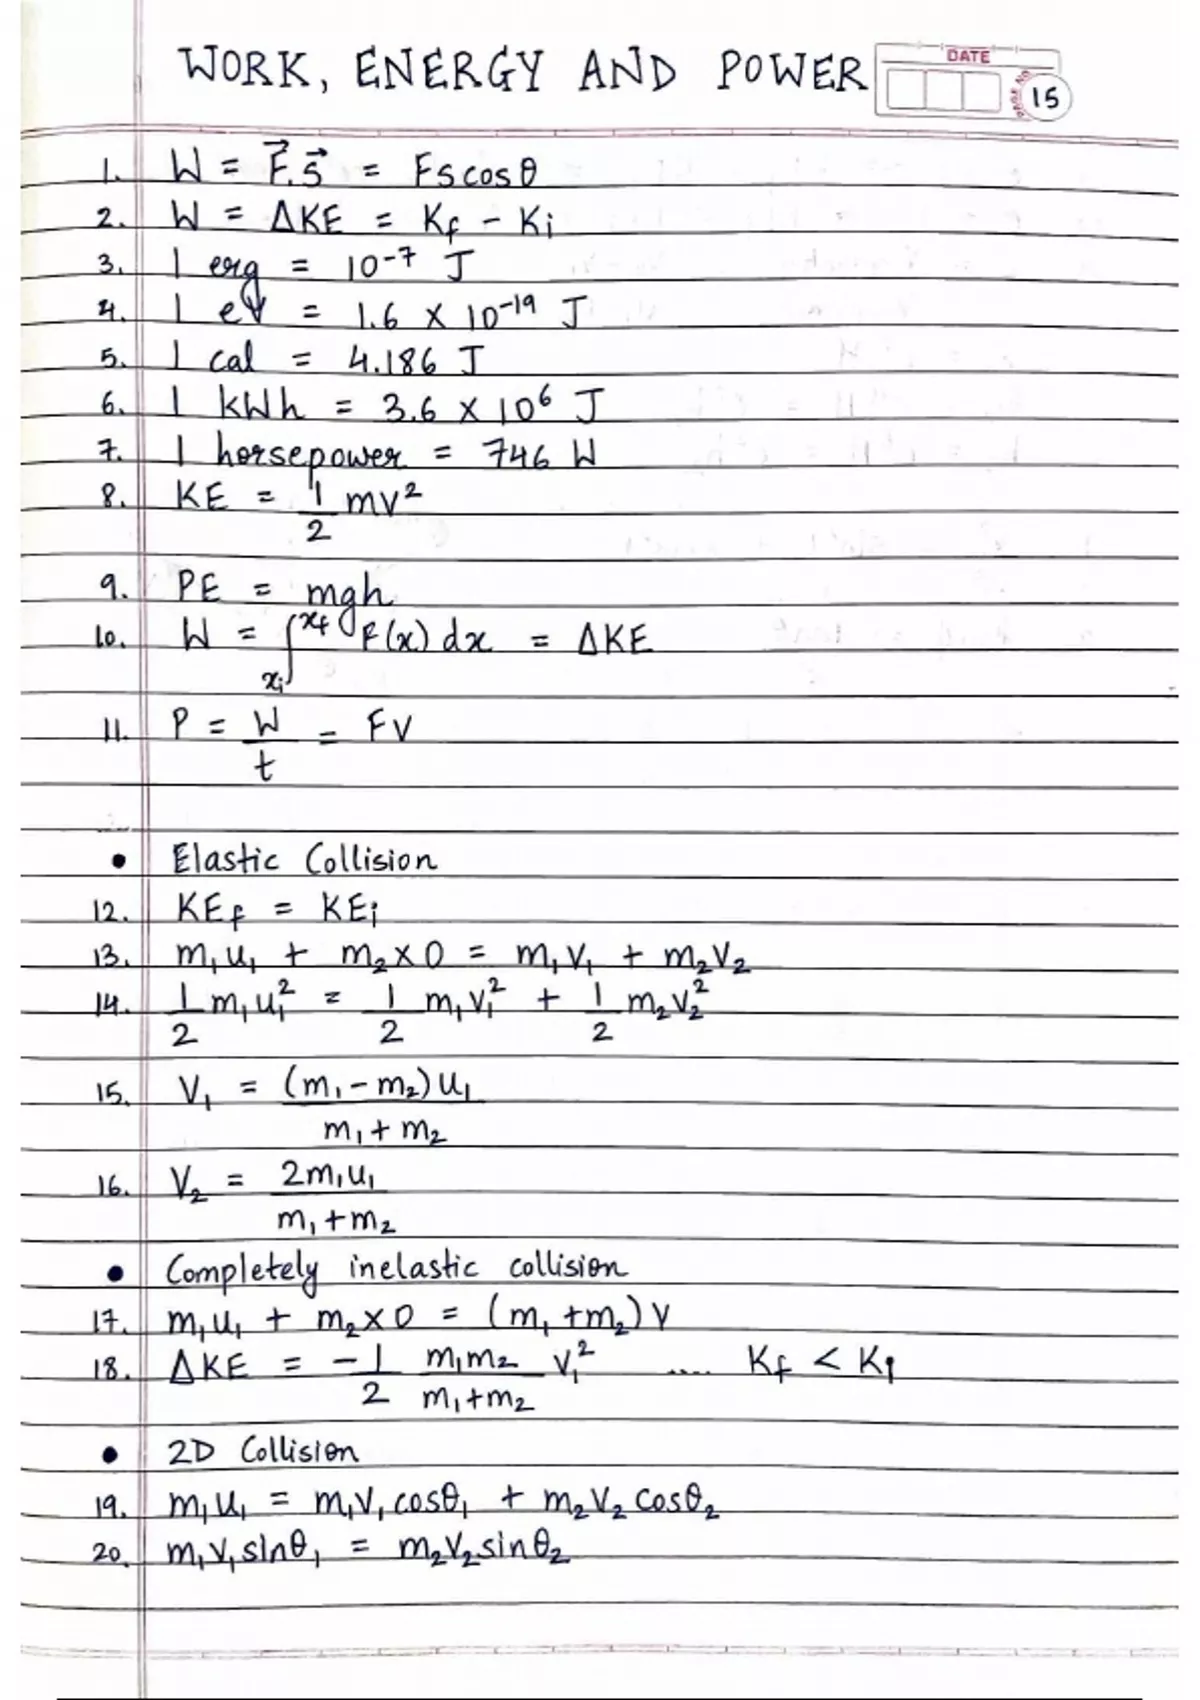 WORK, ENERGY AND POWER
DATE
PAGE NO 15
1. W = F⃗.s⃗ = Fscosθ
2. W = ΔKE = Kf - Ki
3. 1 erg = 10⁻⁷ J
4. 1 eV = 1.6 × 10⁻¹⁹ J
5. 1 cal = 4.186 J
6. 1 kWh = 3.6 × 10⁶ J
7. 1 horsepower = 746 W
8. KE = 1/2 mv²
9. PE = mgh
10. W = ∫xi^xf F(x) dx = ΔKE
11. P = W/t = FV
• Elastic Collision
12. KEf = KEi
13. m₁u₁ + m₂×0 = m₁V₁ + m₂V₂
14. 1/2 m₁u₁² = 1/2 m₁V₁² + 1/2 m₂V₂²
15. V₁ = (m₁-m₂)u₁ / m₁+m₂
16. V₂ = 2m₁u₁ / m₁+m₂
• Completely inelastic collision
17. m₁u₁ + m₂×0 = (m₁+m₂)V
18. ΔKE = -1/2 m₁m₂/m₁+m₂ V₁² .... Kf < Ki
• 2D Collision
19. m₁u₁ = m₁V₁cosθ₁ + m₂V₂cosθ₂
20. m₁V₁sinθ₁ = m₂V₂sinθ₂